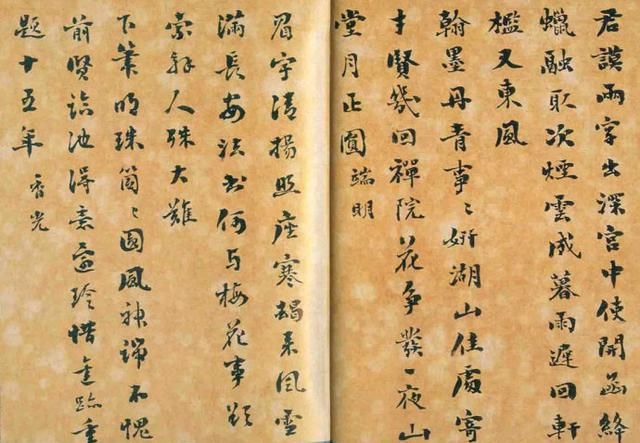 君謨兩字出深宮中使開函絳
蠟融取次煙雲成暮雨遲回軒
檻又東風
翰墨丹青事〻妍湖山佳處寄
才賢幾回禪院花爭發一夜山
堂月正圓 端明
眉宇清揚照座寒朅來風雪
滿長安法書何与梅花事欲
索解人殊大難
下筆明珠箇〻圓風神端不愧
前賢臨池得意還珍惜跡重
題十五年 香光